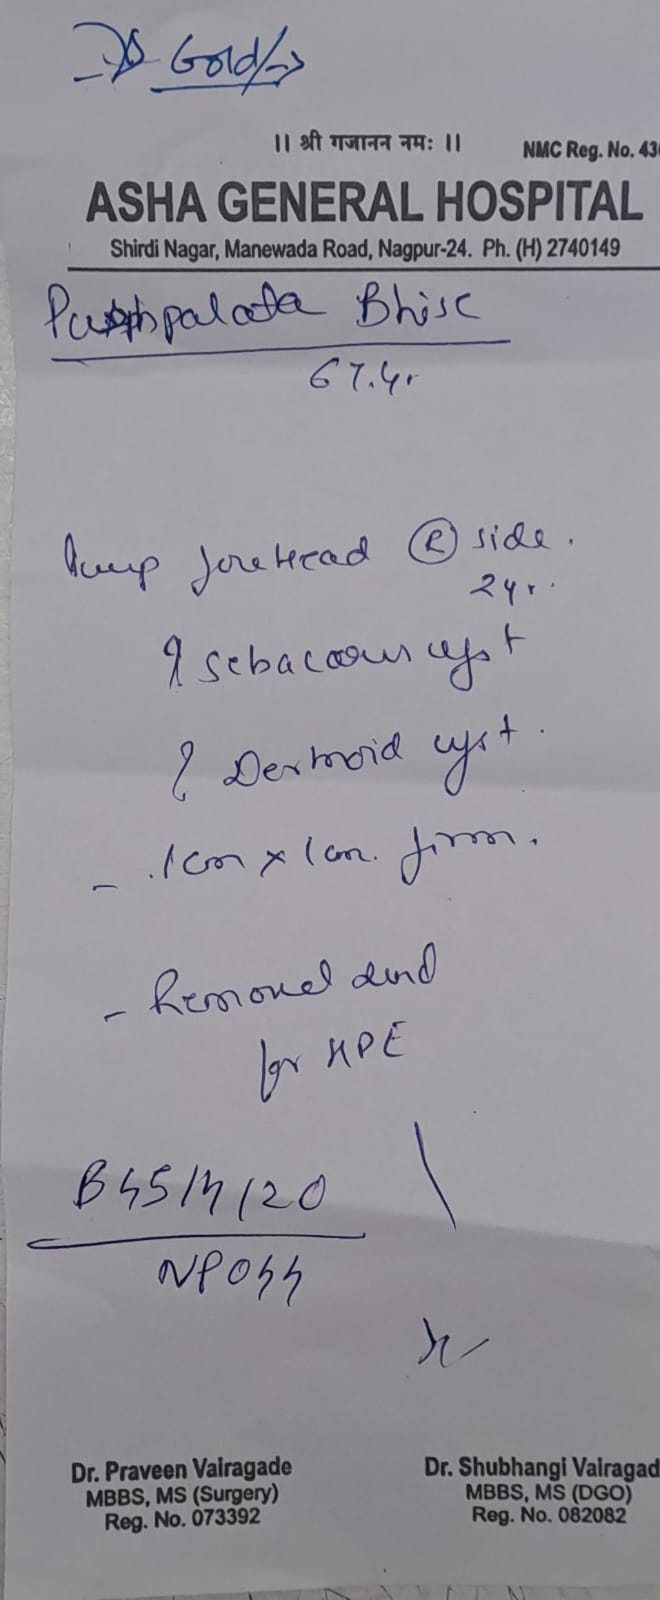 Gold/-
|| श्री गजानन नमः ||
NMC Reg. No. 43
ASHA GENERAL HOSPITAL
Shirdi Nagar, Manewada Road, Nagpur-24. Ph. (H) 2740149
Pushpalata Bhise
67.yr
lump forehead (R) side.
2yr.
? sebaceous cyst
? Dermoid cyst.
- 1cm x 1cm. firm.
- Removed and
for HPE
NP044
Dr. Praveen Vairagade
Dr. Shubhangi Vairagad
MBBS, MS (Surgery)
MBBS, MS (DGO)
Reg. No. 073392
Reg. No. 082082